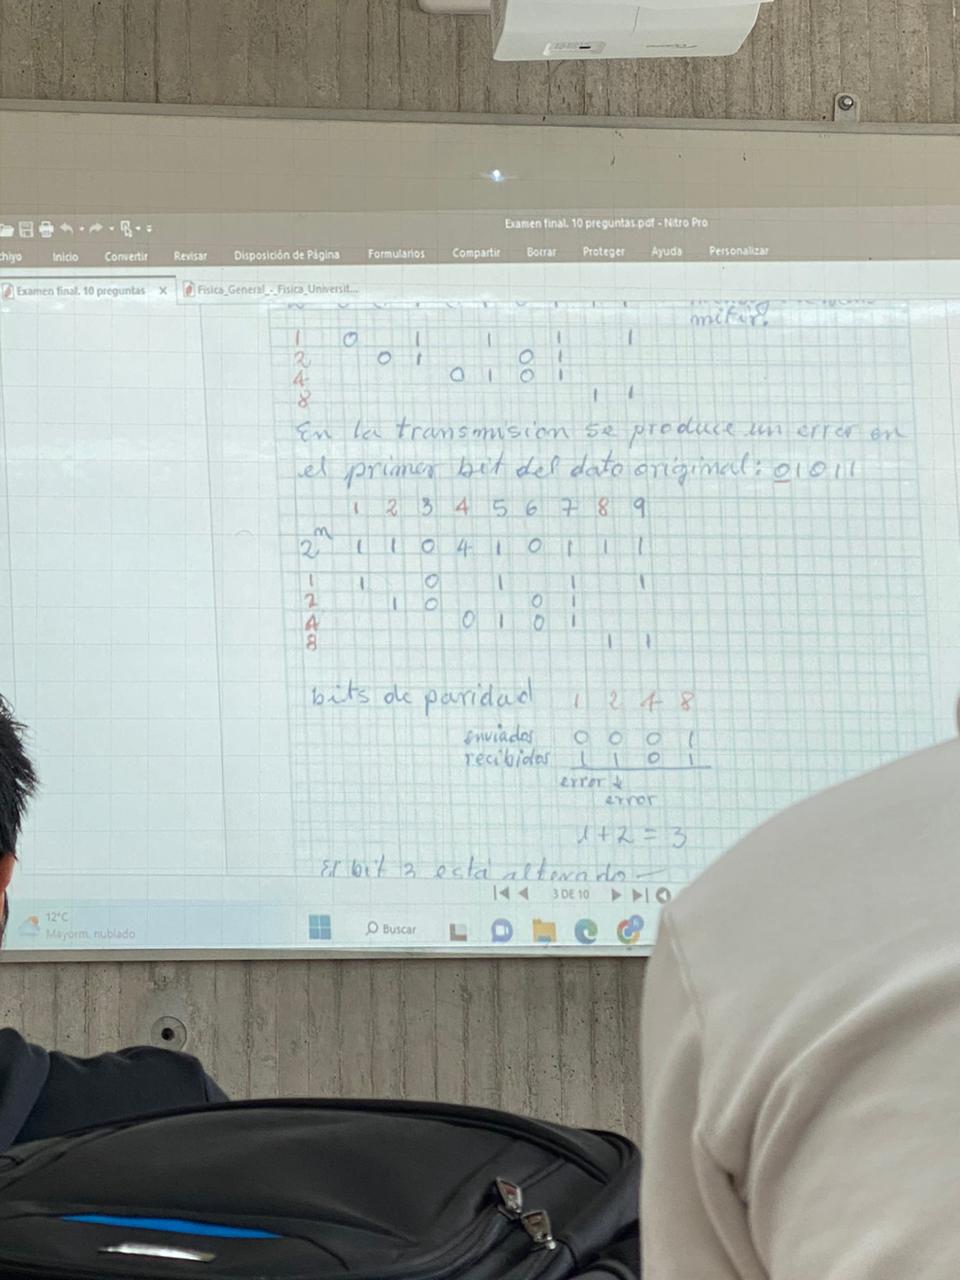 Examen final. 10 preguntas.pdf - Nitro Pro
chivo Inicio Convertir Revisar Disposición de Página Formularios Compartir Borrar Proteger Ayuda Personalizar
Examen final. 10 preguntas × Fisica_General_-_Fisica_Universit...
mitir.
1 0 1 1 1 1
2 0 1 0 1
4 0 1 0 1
8 1 1
En la transmision se produce un error en
el primer bit del dato original: 01011
1 2 3 4 5 6 7 8 9
2^n 1 1 0 4 1 0 1 1 1
1 1 0 1 1 1
2 1 0 0 1
4 0 1 0 1
8 1 1
bits de paridad 1 2 4 8
enviados 0 0 0 1
recibidos 1 1 0 1
error ↓
error
1+2 = 3
El bit 3 está alterado
3 DE 10
12°C
Mayorm. nublado
Buscar